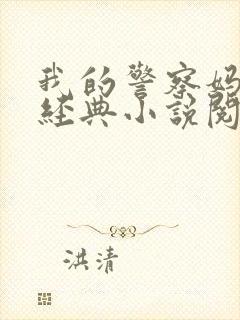 我的警察妈
經典小說閱
洪清